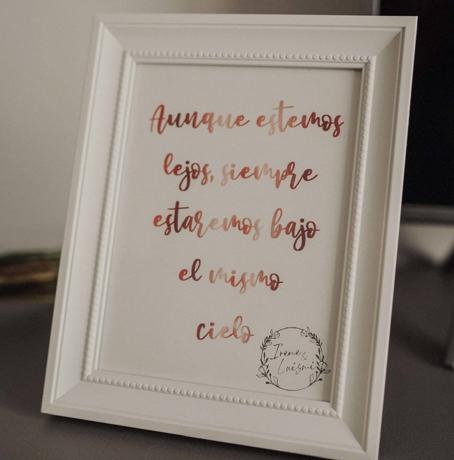 Aunque estemos
lejos, siempre
estaremos bajo
el mismo
cielo
Irene &
Luismi